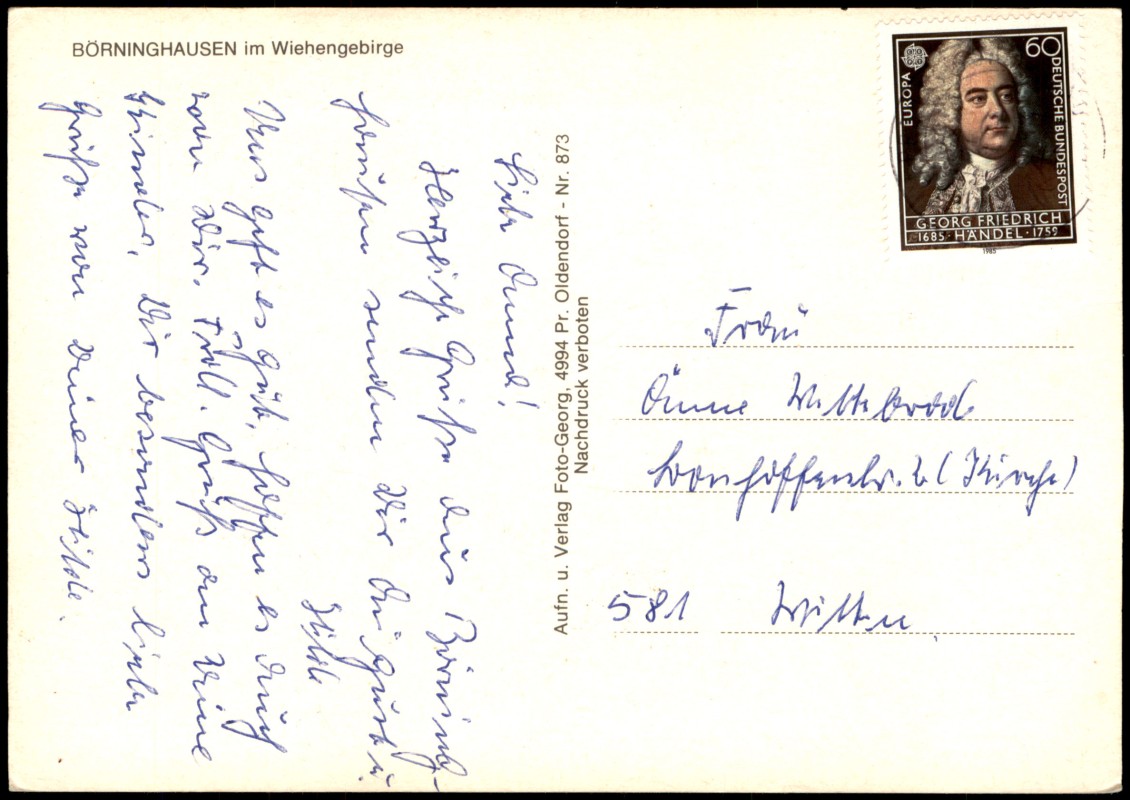 BÖRNINGHAUSEN im Wiehengebirge
Liebe Änne!
Herzliche Grüße aus Börning-
hausen senden Dir August u.
Hilde
Uns geht es gut, hoffen es auch
von Dir. Frdl. Gruß an Deine
Kinder, Dir besonders liebe
Grüße von Deiner Hilde.
Aufn. u. Verlag Foto-Georg, 4994 Pr. Oldendorf - Nr. 873
Nachdruck verboten
EUROPA
60
DEUTSCHE BUNDESPOST
GEORG FRIEDRICH
1685 · HÄNDEL · 1759
1985
Frau
Änne Wittebrock
Bonhöfferstr. 2 (Kirche)
581 Witten